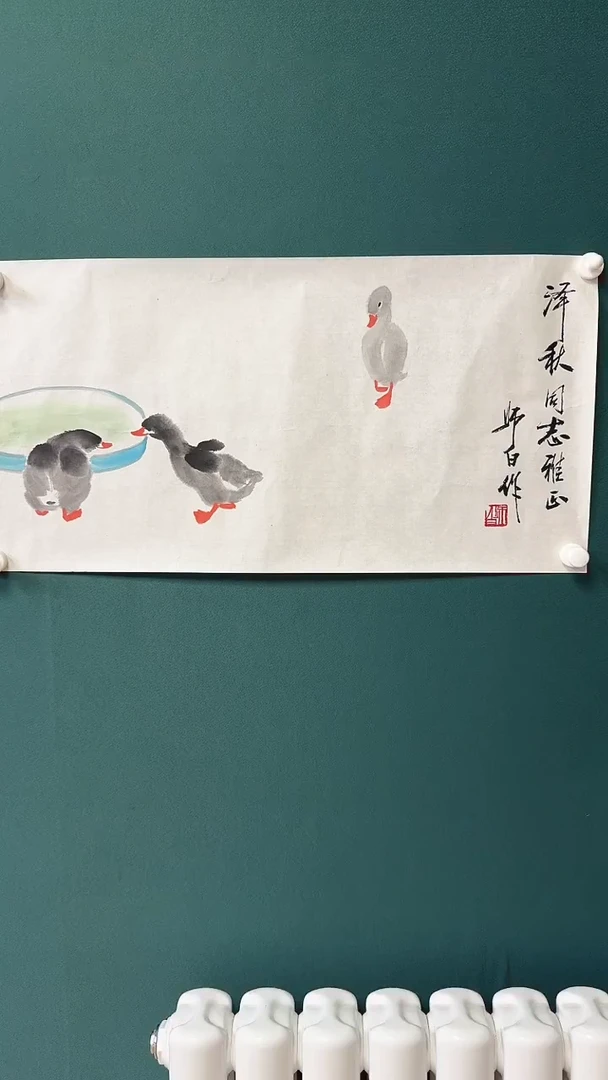 泽秋同志雅正
师白作